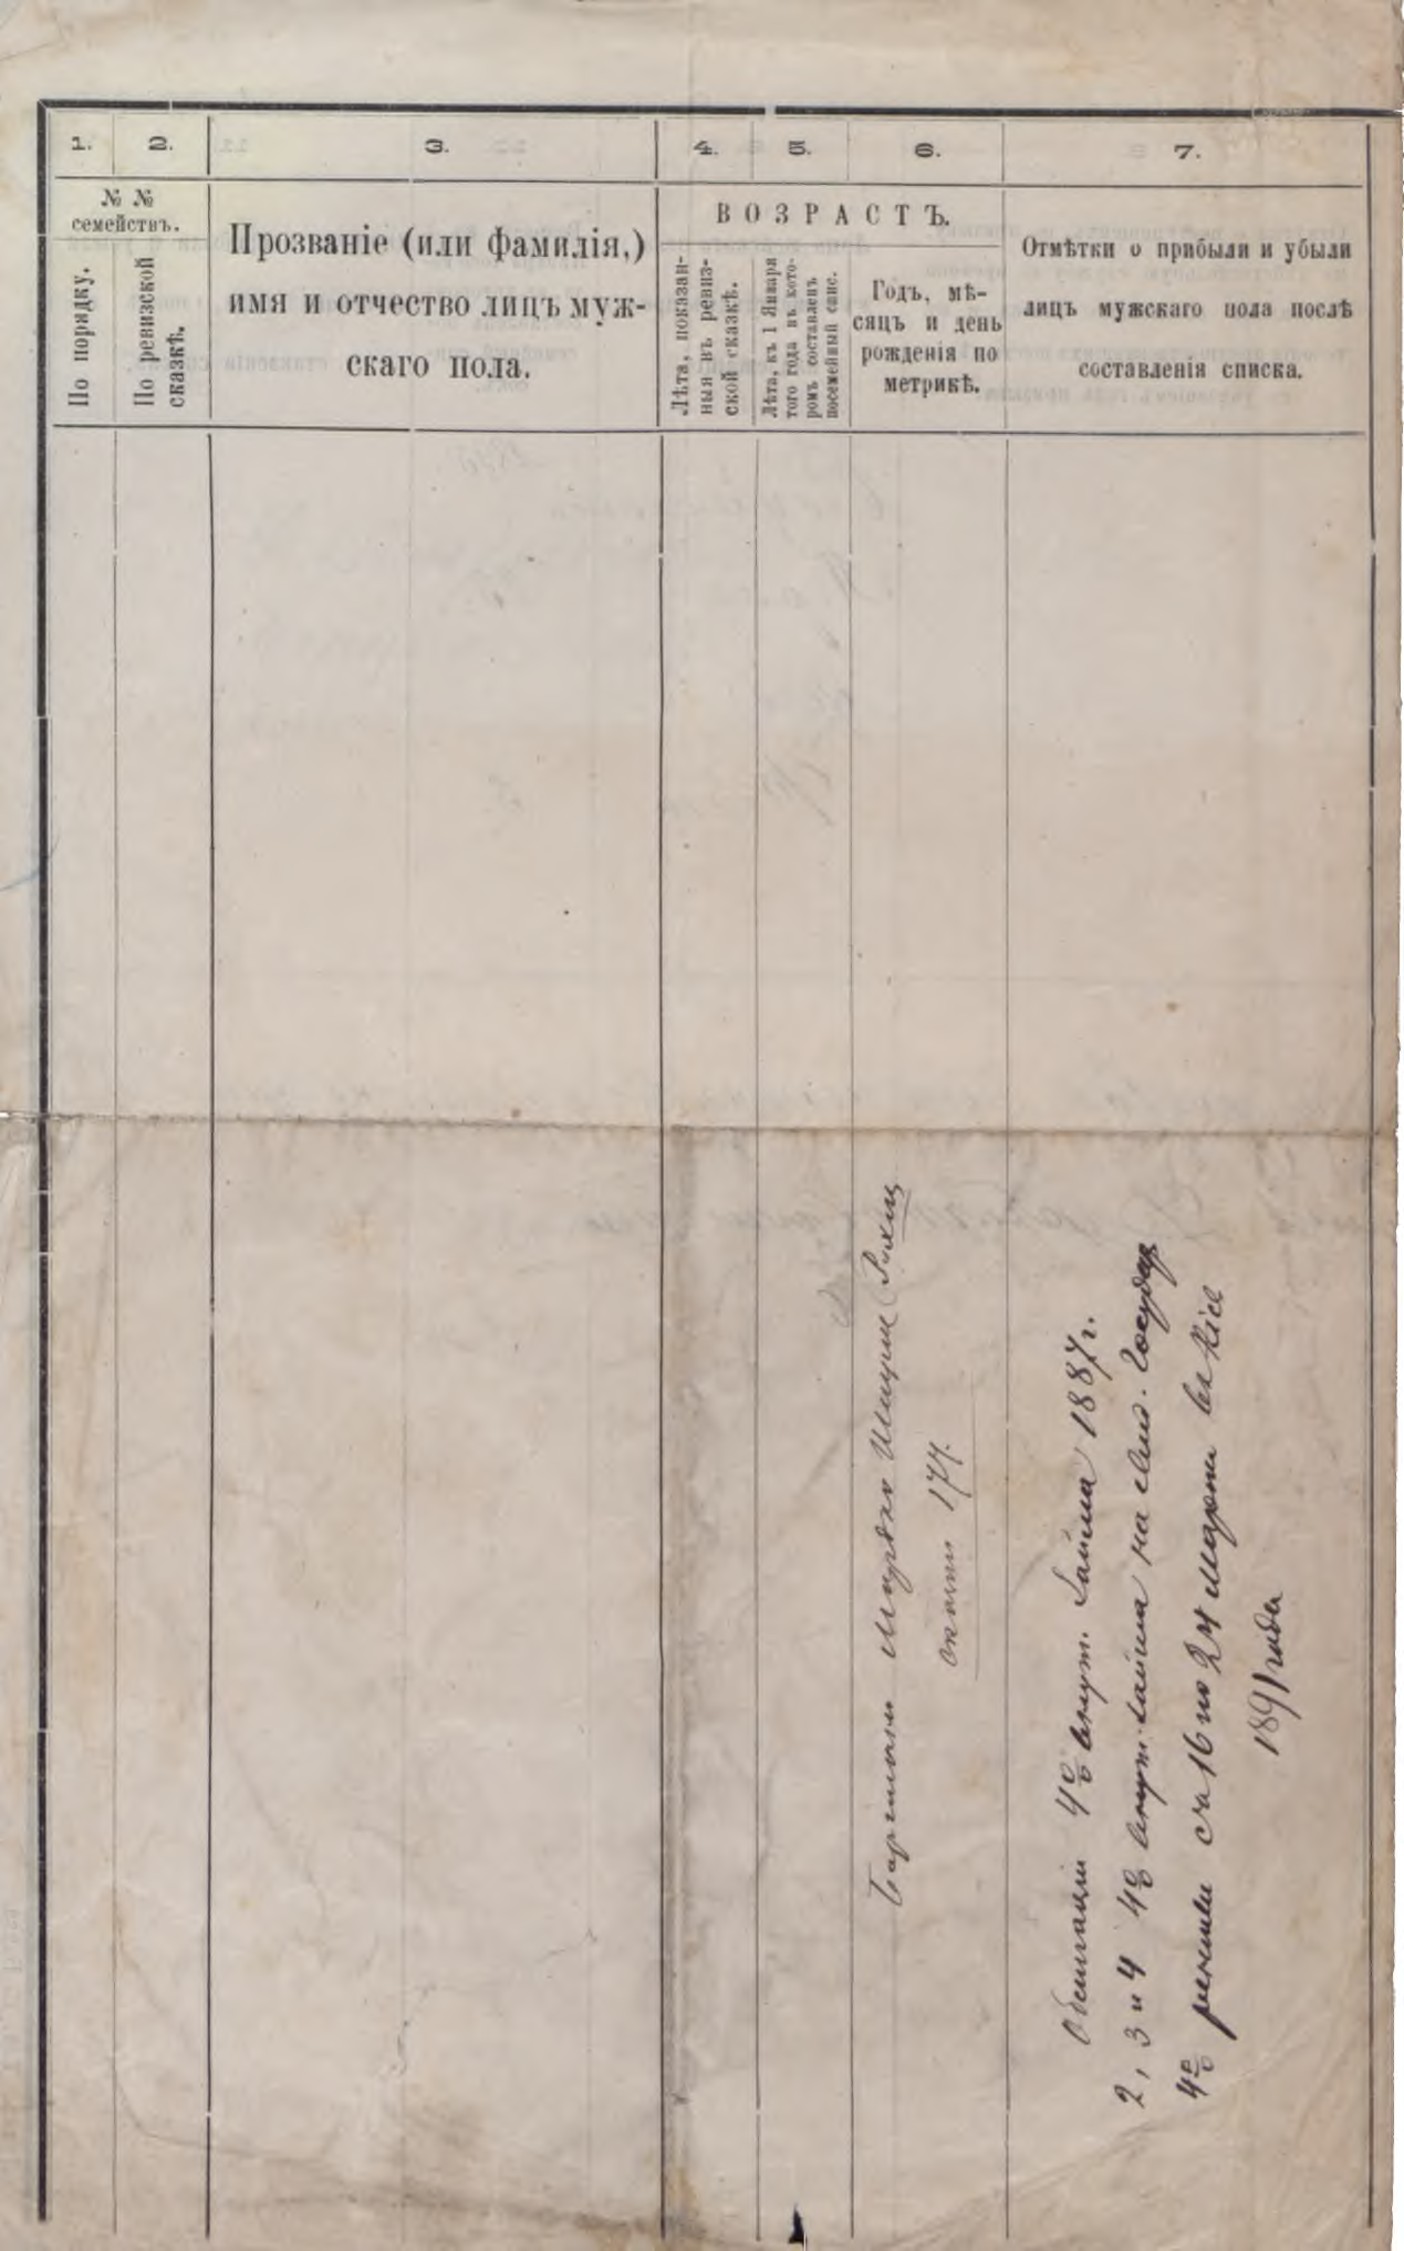 1. 2. 3. 4. 5. 6. 7.
№ №
семействъ.
По порядку.
По ревизской
сказкѣ.
Прозваніе (или фамилія,)
имя и отчество лицъ муж-
скаго пола.
ВОЗРАСТЪ.
Лѣта, показан-
ныя въ ревиз-
ской сказкѣ.
Лѣта, къ 1 Января
того года въ кото-
ромъ составленъ
посемейный спис.
Годъ, мѣ-
сяцъ и день
рожденія по
метрикѣ.
Отмѣтки о прибыли и убыли
лицъ мужскаго пола послѣ
составленія списка.
Мардко
177.
4% внут. займа 1887 г.
2, 3 и 4 4% внут. займа на
4% ренты съ 16 по 24 Марта
1891 года